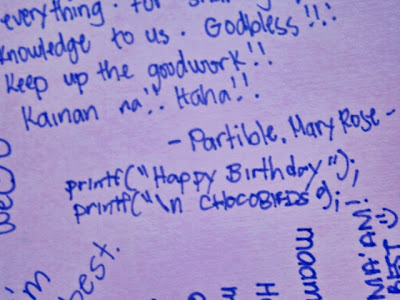 everything. for
knowledge to us. Godbless!!!
Keep up the goodwork!!
Kainan na!! Haha!!
- Partible, Mary Rose -
printf("Happy Birthday");
printf("\n CHOCOBIRDS");
best.
maam
MA'AM!
BEST =)